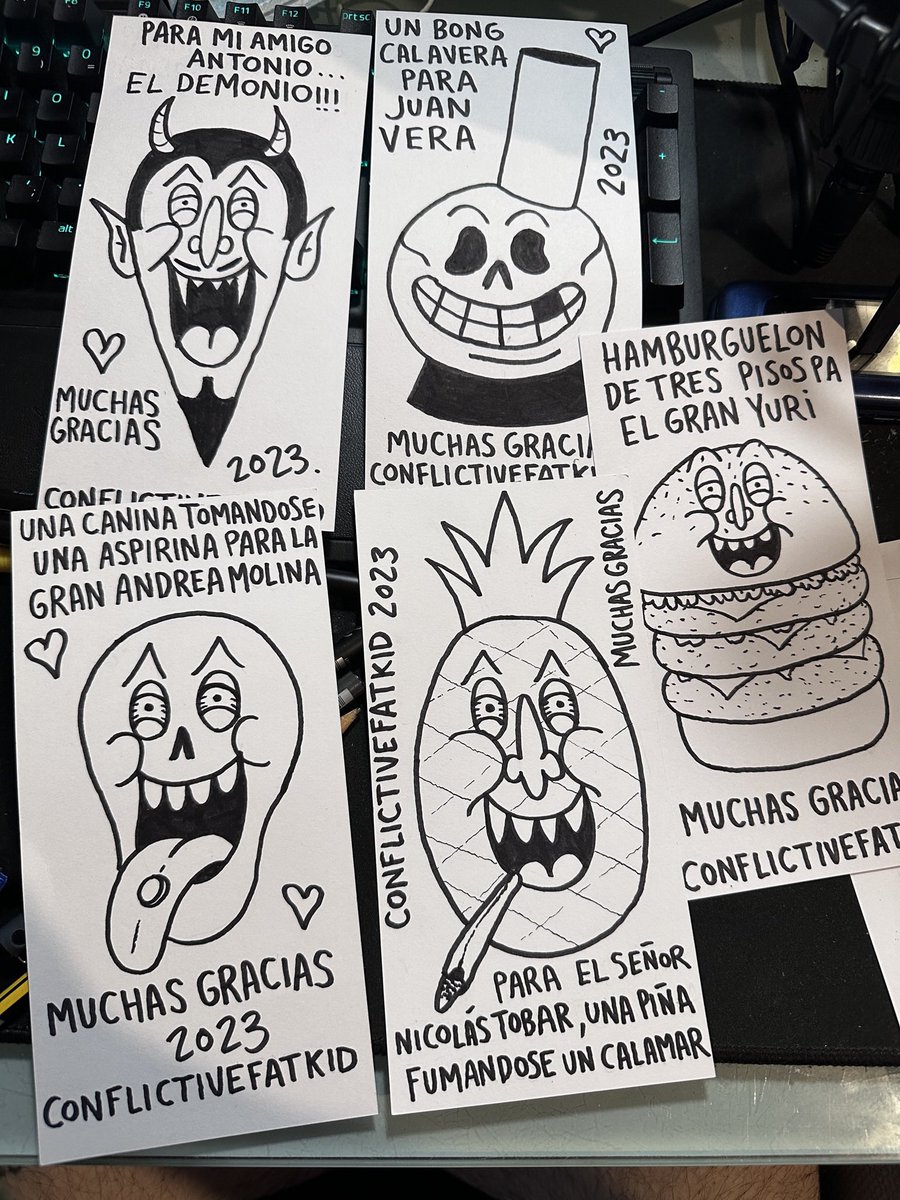 F9
F10
F11
F12
9
0
I
O
K
L
alt
-
+
PARA MI AMIGO
ANTONIO...
EL DEMONIO!!!
MUCHAS
GRACIAS
2023.
UN BONG
CALAVERA
PARA
JUAN
VERA
2023
MUCHAS GRACIA
CONFLICTIVEFATKI
HAMBURGUELON
DE TRES PISOS PA
EL GRAN YURi
MUCHAS GRACIA
CONFLICTIVEFAT
UNA CANINA TOMANDOSE,
UNA ASPIRINA PARA LA
GRAN ANDREA MOLINA
MUCHAS GRACIAS
2023
CONFLICTIVEFATKID
CONFLICTIVEFATKID 2023
MUCHAS GRACIAS
PARA EL SEÑOR
NICOLÁS TOBAR, UNA PIÑA
FUMANDOSE UN CALAMAR